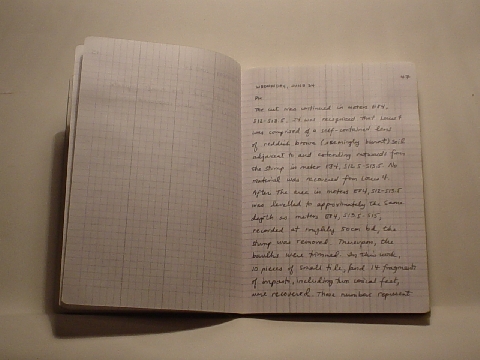 47
WEDNESDAY, JULY 24
PM
The cut was continued in meters E84,
S12-S13.5. It was recognized that Locus 4
was composed of a self-contained lens
of reddish brown (seemingly burnt) soil
adjacent to and extending outwards from
the stump in meter E84, S12.5-S13.5. No
material was recovered from Locus 4.
After the area in meters E84, S12-S13.5
was levelled to approximately the same
depth as meters E84, S13.5-S15,
recorded at roughly 50cm bd, the
stump was removed. Thereupon, the
baulks were trimmed. In this work,
12 pieces of small tile, and 14 fragments
of impasto, including two conical feet,
were recovered. These numbers represent